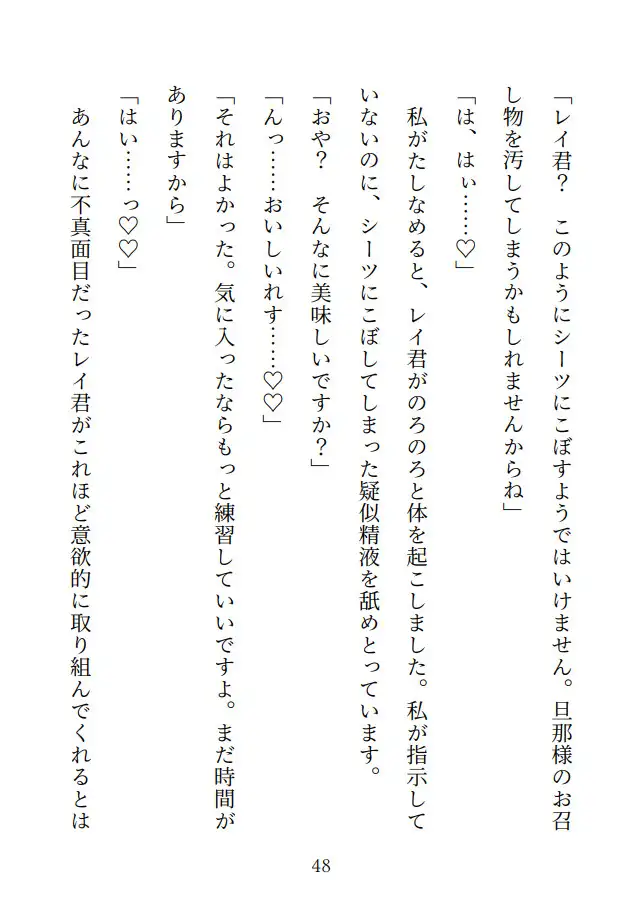 「レイ君？　このようにシーツにこぼすようではいけません。旦那様のお召
し物を汚してしまうかもしれませんからね」
「は、はぃ……♡」
　私がたしなめると、レイ君がのろのろと体を起こしました。私が指示して
いないのに、シーツにこぼしてしまった疑似精液を舐めとっています。
「おや？　そんなに美味しいですか？」
「んっ……おいしいれす……♡♡」
「それはよかった。気に入ったならもっと練習していいですよ。まだ時間が
ありますから」
「はい……っ♡♡」
　あんなに不真面目だったレイ君がこれほど意欲的に取り組んでくれるとは
48